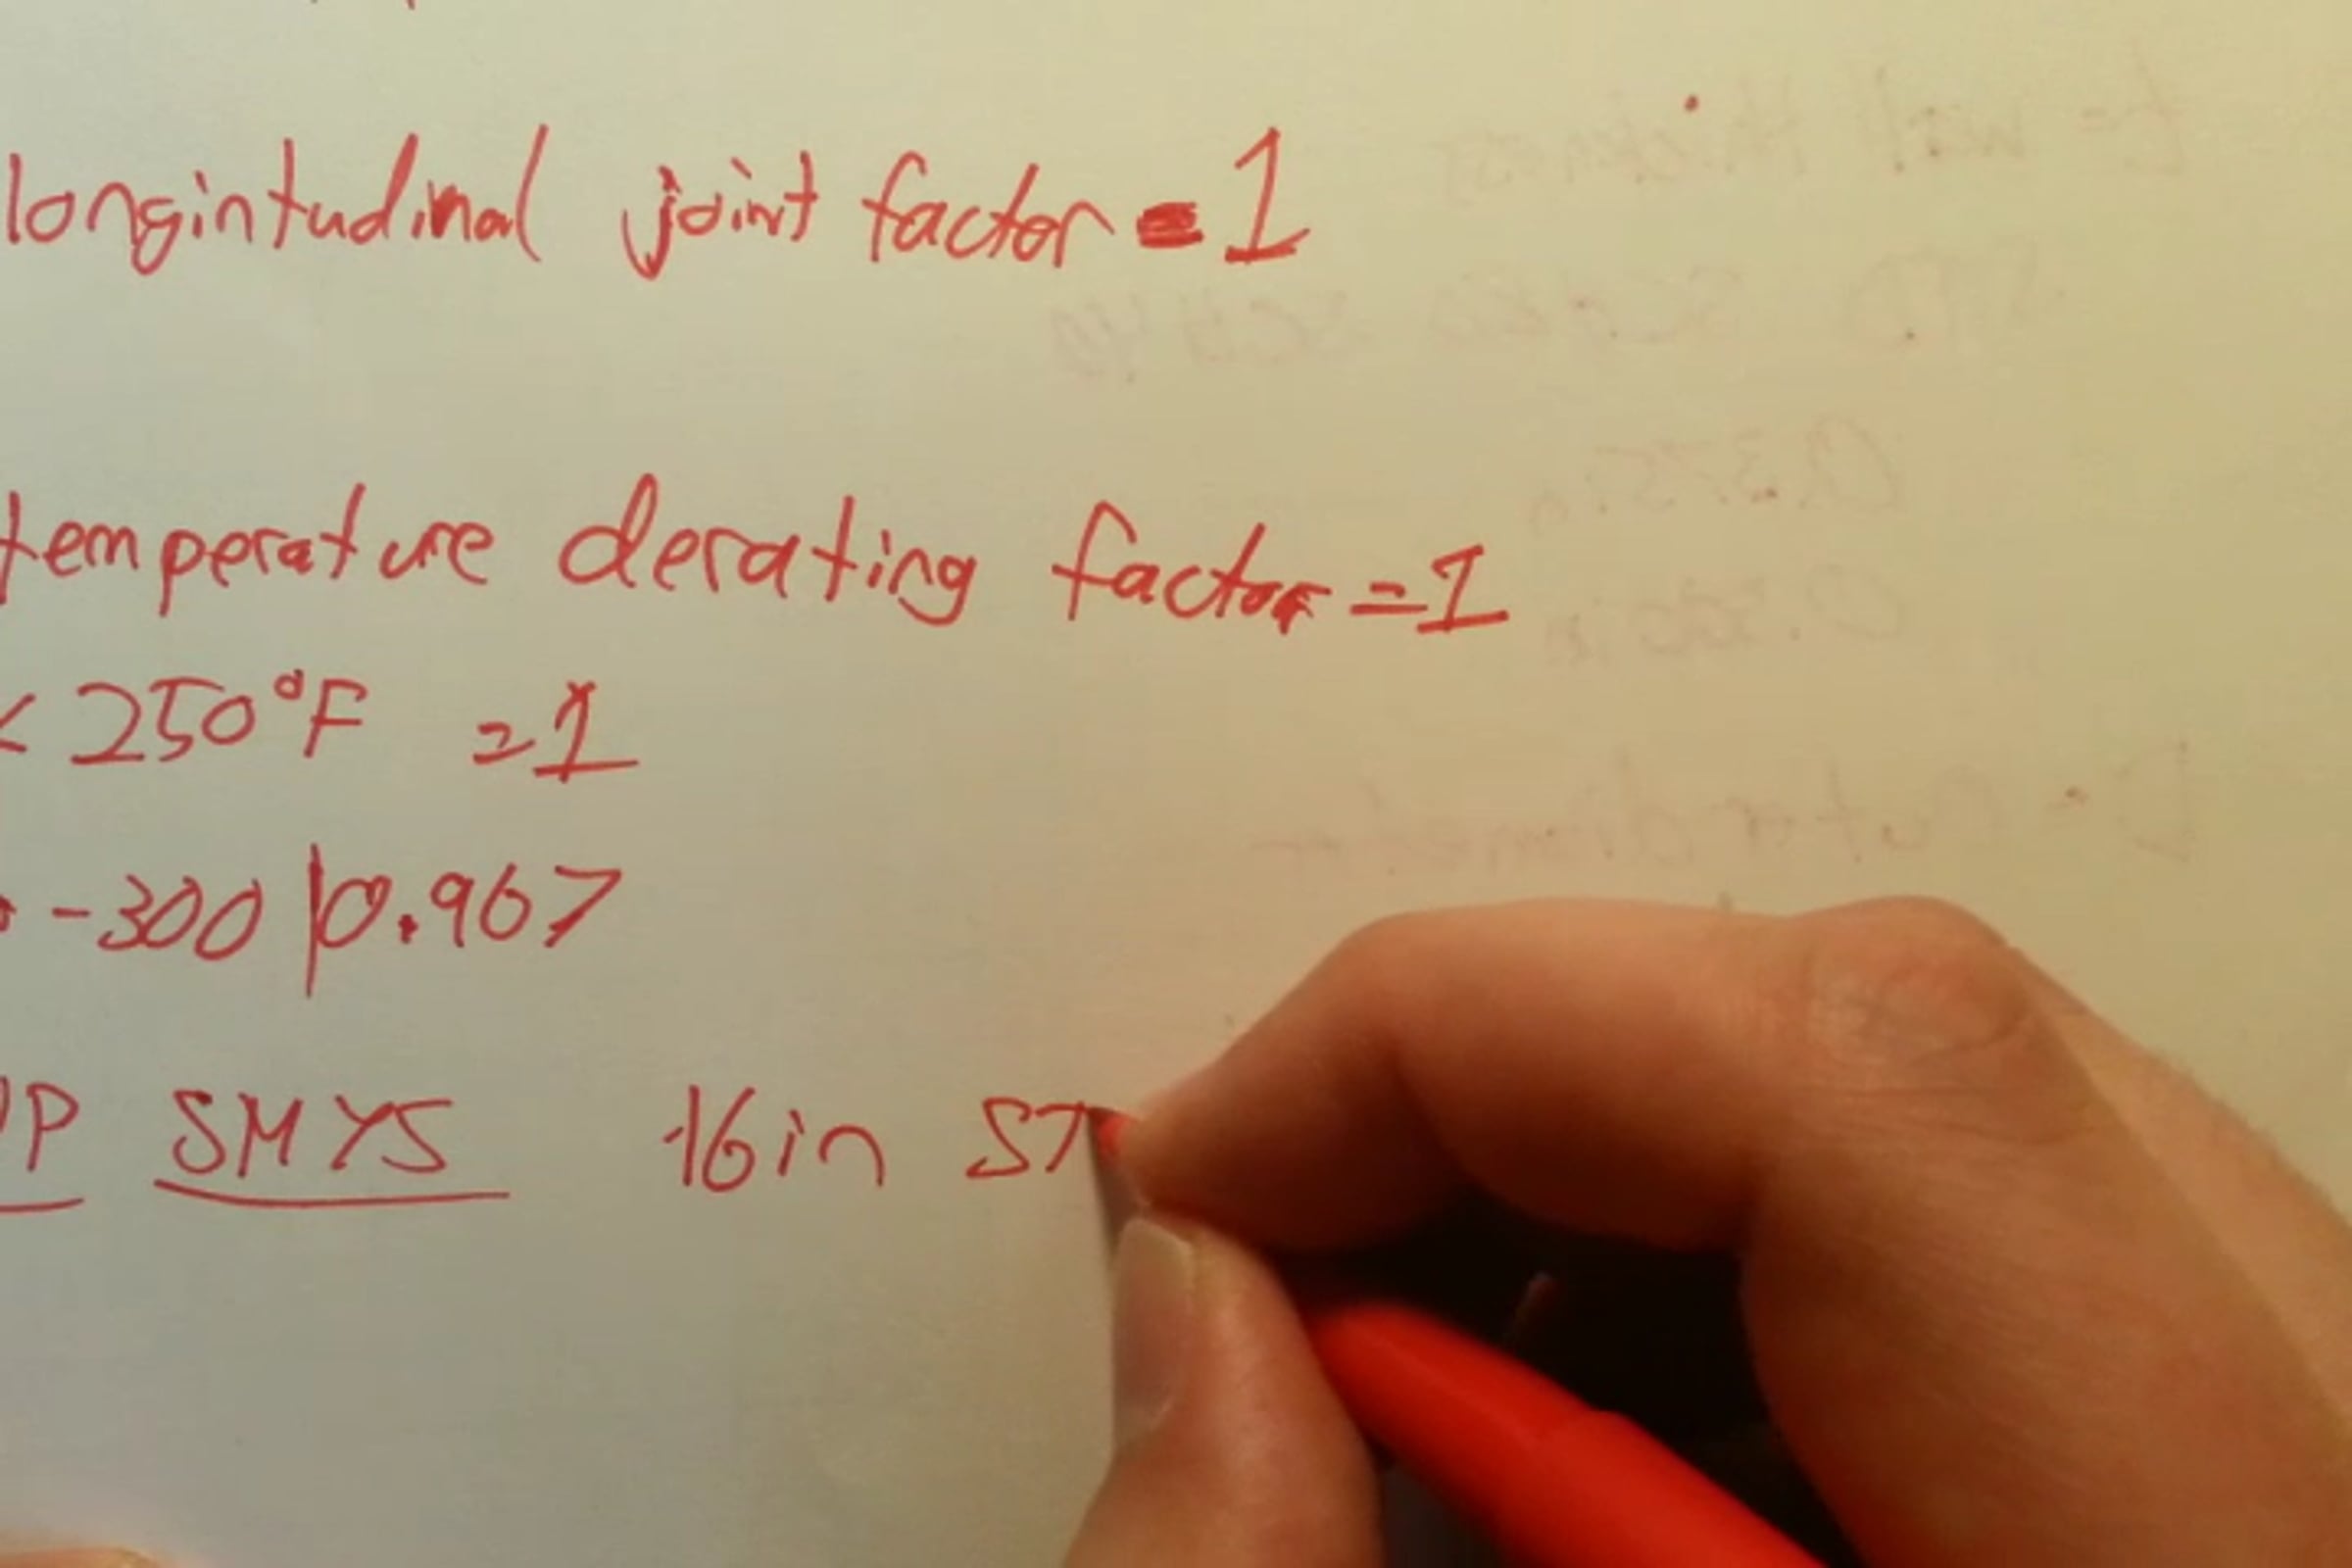 longintudinal joint factor = 1
temperature derating factor = 1
< 250°F = 1
-300 | 0.967
P SMYS 16in ST